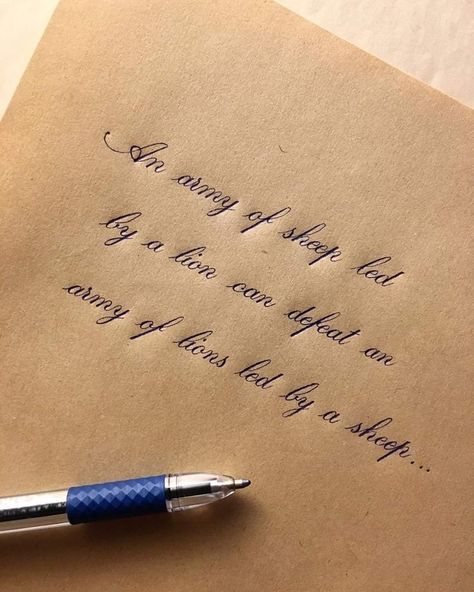 An army of sheep led
by a lion can defeat an
army of lions led by a sheep...